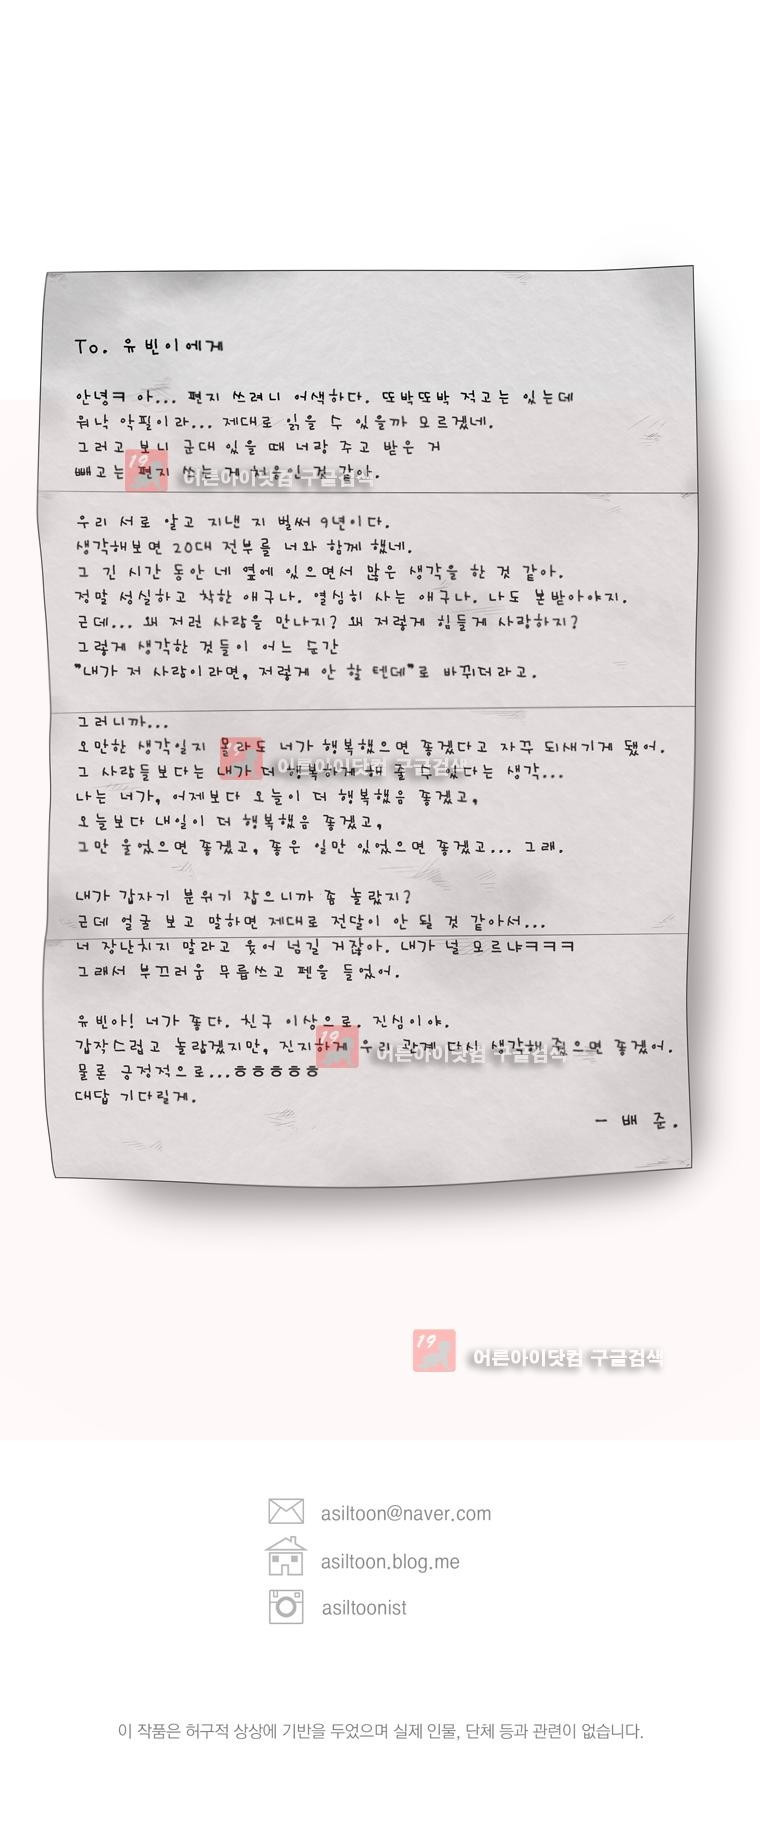 To. 유빈이에게
안녕ㅋ 아... 편지 쓰려니 어색하다. 또박또박 적고는 있는데
워낙 악필이라... 제대로 읽을 수 있을까 모르겠네.
그러고 보니 군대 있을 때 너랑 주고 받은 거
빼고는 편지 쓰는 게 처음인 것 같아.
19
어른아이닷컴 구글검색
우리 서로 알고 지낸 지 벌써 9년이다.
생각해보면 20대 전부를 너와 함께 했네.
그 긴 시간 동안 네 옆에 있으면서 많은 생각을 한 것 같아.
정말 성실하고 착한 애구나. 열심히 사는 애구나. 나도 본받아야지.
근데... 왜 저런 사람을 만나지? 왜 저렇게 힘들게 사랑하지?
그렇게 생각한 것들이 어느 순간
"내가 저 사람이라면, 저렇게 안 할 텐데"로 바뀌더라고.
그러니까...
오만한 생각일지 몰라도 너가 행복했으면 좋겠다고 자꾸 되새기게 됐어.
그 사람들보다는 내가 더 행복하게 해 줄 수 있다는 생각...
어른아이닷컴 구글검색
나는 너가, 어제보다 오늘이 더 행복했음 좋겠고,
오늘보다 내일이 더 행복했음 좋겠고,
그만 울었으면 좋겠고, 좋은 일만 있었으면 좋겠고... 그래.
내가 갑자기 분위기 잡으니까 좀 놀랐지?
근데 얼굴 보고 말하면 제대로 전달이 안 될 것 같아서...
너 장난치지 말라고 웃어 넘길 거잖아. 내가 널 모르냐ㅋㅋㅋ
그래서 부끄러움 무릅쓰고 펜을 들었어.
유빈아! 너가 좋다. 친구 이상으로. 진심이야.
갑작스럽고 놀랍겠지만, 진지하게 우리 관계 다시 생각해 줬으면 좋겠어.
19
어른아이닷컴 구글검색
물론 긍정적으로...ㅎㅎㅎㅎㅎ
대답 기다릴게.
- 배 준.
19
어른아이닷컴 구글검색
asiltoon@naver.com
asiltoon.blog.me
asiltoonist
이 작품은 허구적 상상에 기반을 두었으며 실제 인물, 단체 등과 관련이 없습니다.